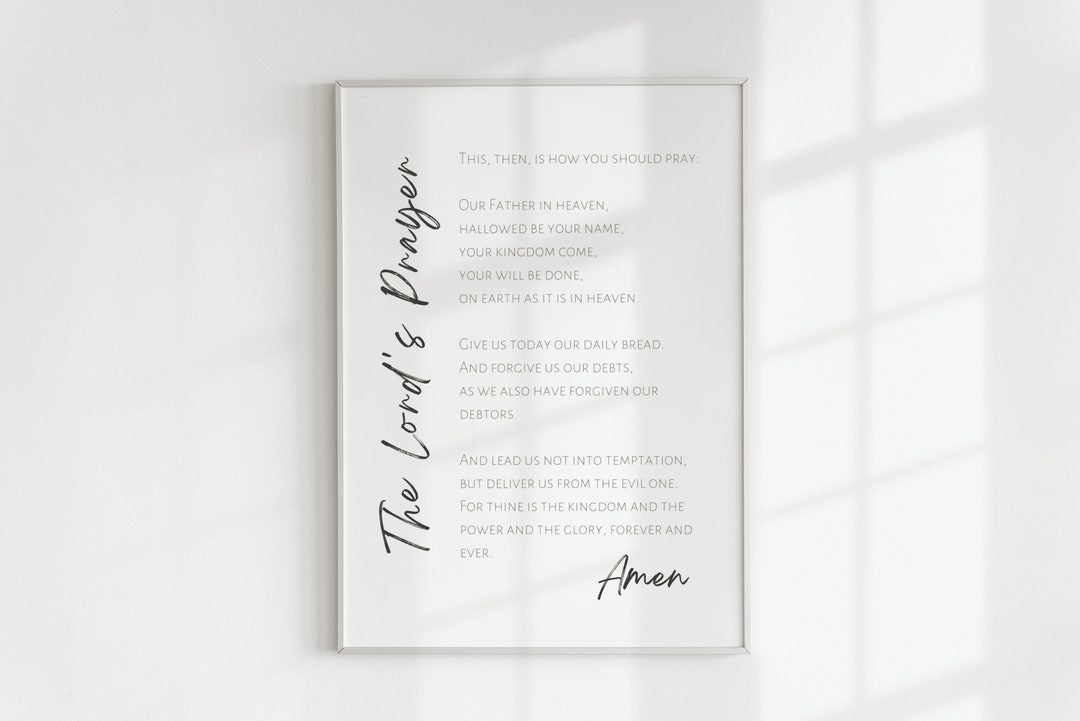 The Lord's Prayer
This, then, is how you should pray:
Our Father in heaven,
hallowed be your name,
your kingdom come,
your will be done,
on earth as it is in heaven.
Give us today our daily bread.
And forgive us our debts,
as we also have forgiven our
debtors.
And lead us not into temptation,
but deliver us from the evil one.
For thine is the kingdom and the
power and the glory, forever and
ever.
Amen